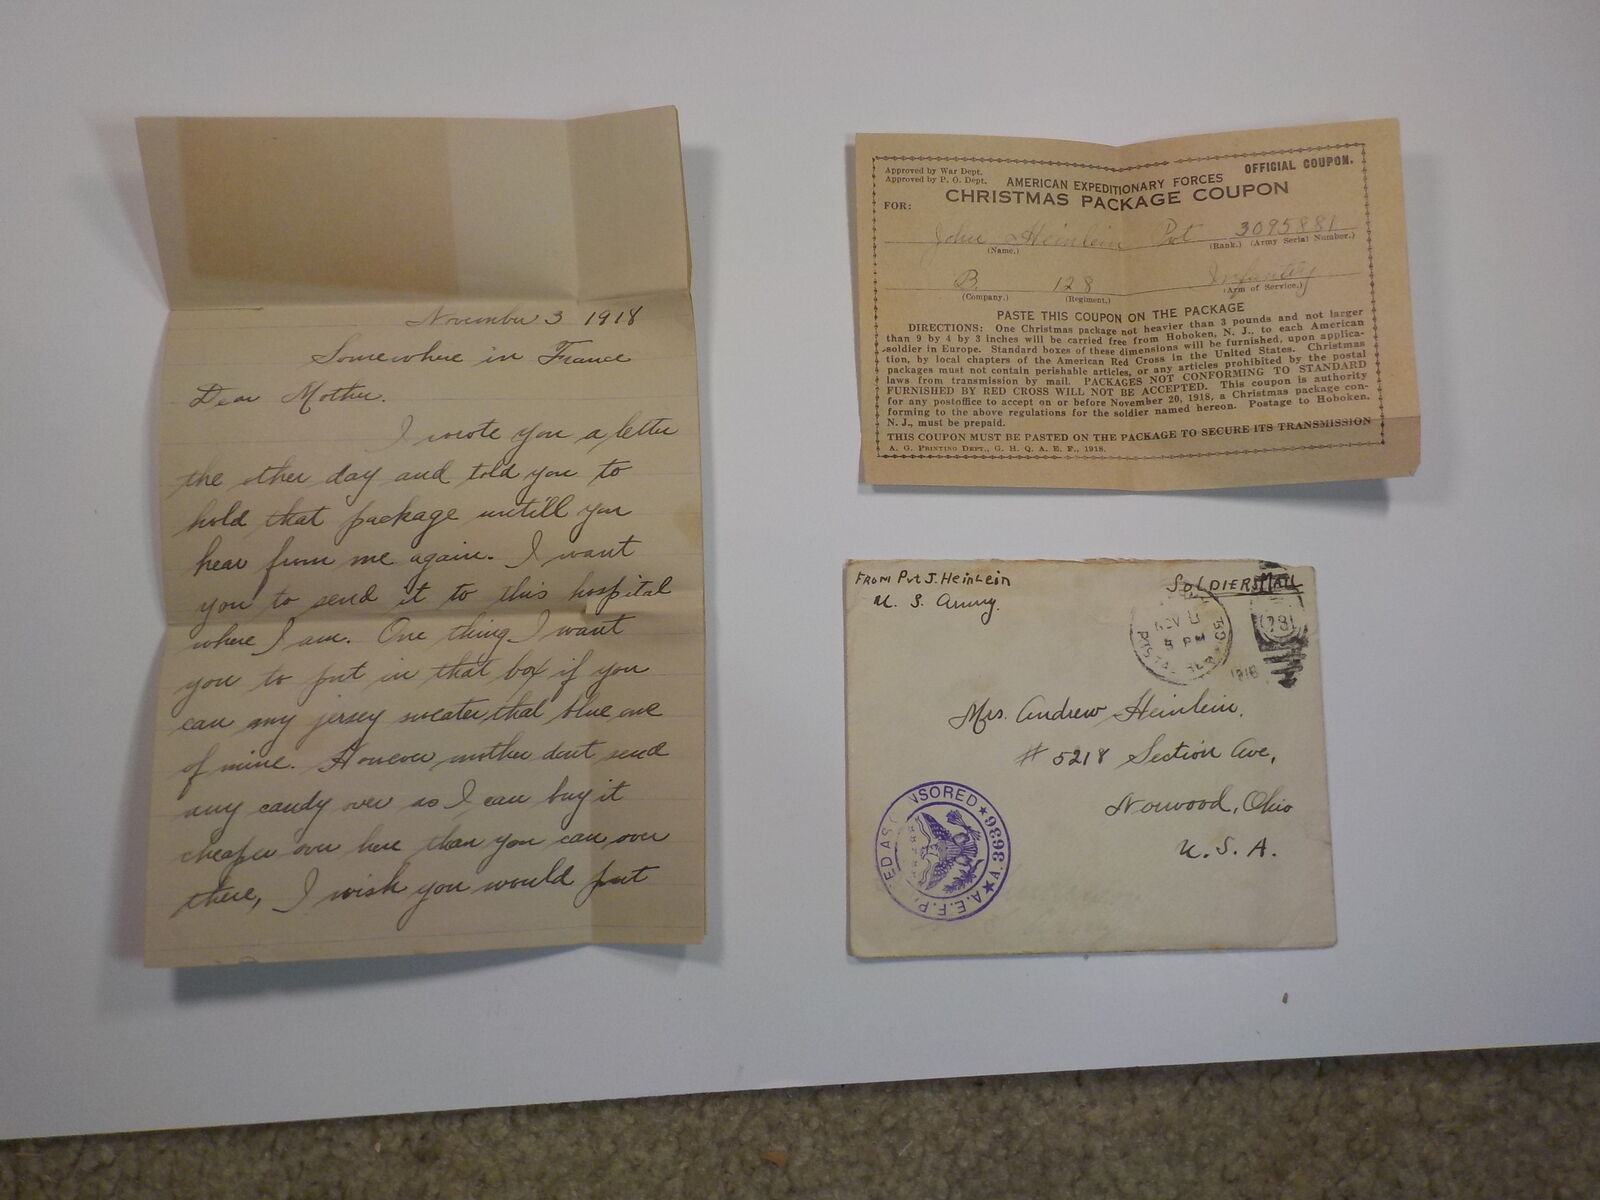 November 3 1918
Somewhere in France
Dear Mother.
I wrote you a letter
the other day and told you to
hold that package untill you
hear from me again. I want
you to send it to this hospital
where I am. One thing I want
you to put in that box if you
can my jersey sweater, that blue one
of mine. However mother dont send
any candy over as I can buy it
cheaper over here than you can over
there, I wish you would put
Approved by War Dept.
Approved by P. O. Dept.
OFFICIAL COUPON.
AMERICAN EXPEDITIONARY FORCES
CHRISTMAS PACKAGE COUPON
FOR:
John Heinlein Pvt 3095881
(Name.) (Rank.) (Army Serial Number.)
B. 128 Infantry
(Company.) (Regiment.) (Arm of Service.)
PASTE THIS COUPON ON THE PACKAGE
DIRECTIONS: One Christmas package not heavier than 3 pounds and not larger
than 9 by 4 by 3 inches will be carried free from Hoboken, N. J., to each American
soldier in Europe. Standard boxes of these dimensions will be furnished, upon applica-
tion, by local chapters of the American Red Cross in the United States. Christmas
packages must not contain perishable articles, or any articles prohibited by the postal
laws from transmission by mail. PACKAGES NOT CONFORMING TO STANDARD
FURNISHED BY RED CROSS WILL NOT BE ACCEPTED. This coupon is authority
for any postoffice to accept on or before November 20, 1918, a Christmas package con-
forming to the above regulations for the soldier named hereon. Postage to Hoboken,
N. J., must be prepaid.
THIS COUPON MUST BE PASTED ON THE PACKAGE TO SECURE ITS TRANSMISSION
A. G. PRINTING DEPT., G. H. Q. A. E. F., 1918.
FROM Pvt J. HeinLein
U. S. Army.
SOLDIERS MAIL
5 PM
1918
Mrs. Andrew Heinlein,
# 5218 Section Ave,
Norwood, Ohio
U. S. A.
A.E.F. P ED AS C NSORED
A.3936